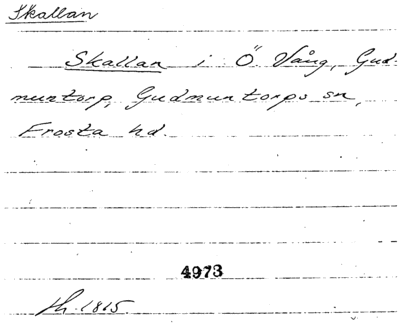 Skallan
Skallan i Ö. Vång, Gud-
muntorp, Gudmuntorps sn,
Frosta hd.
4973
1815.